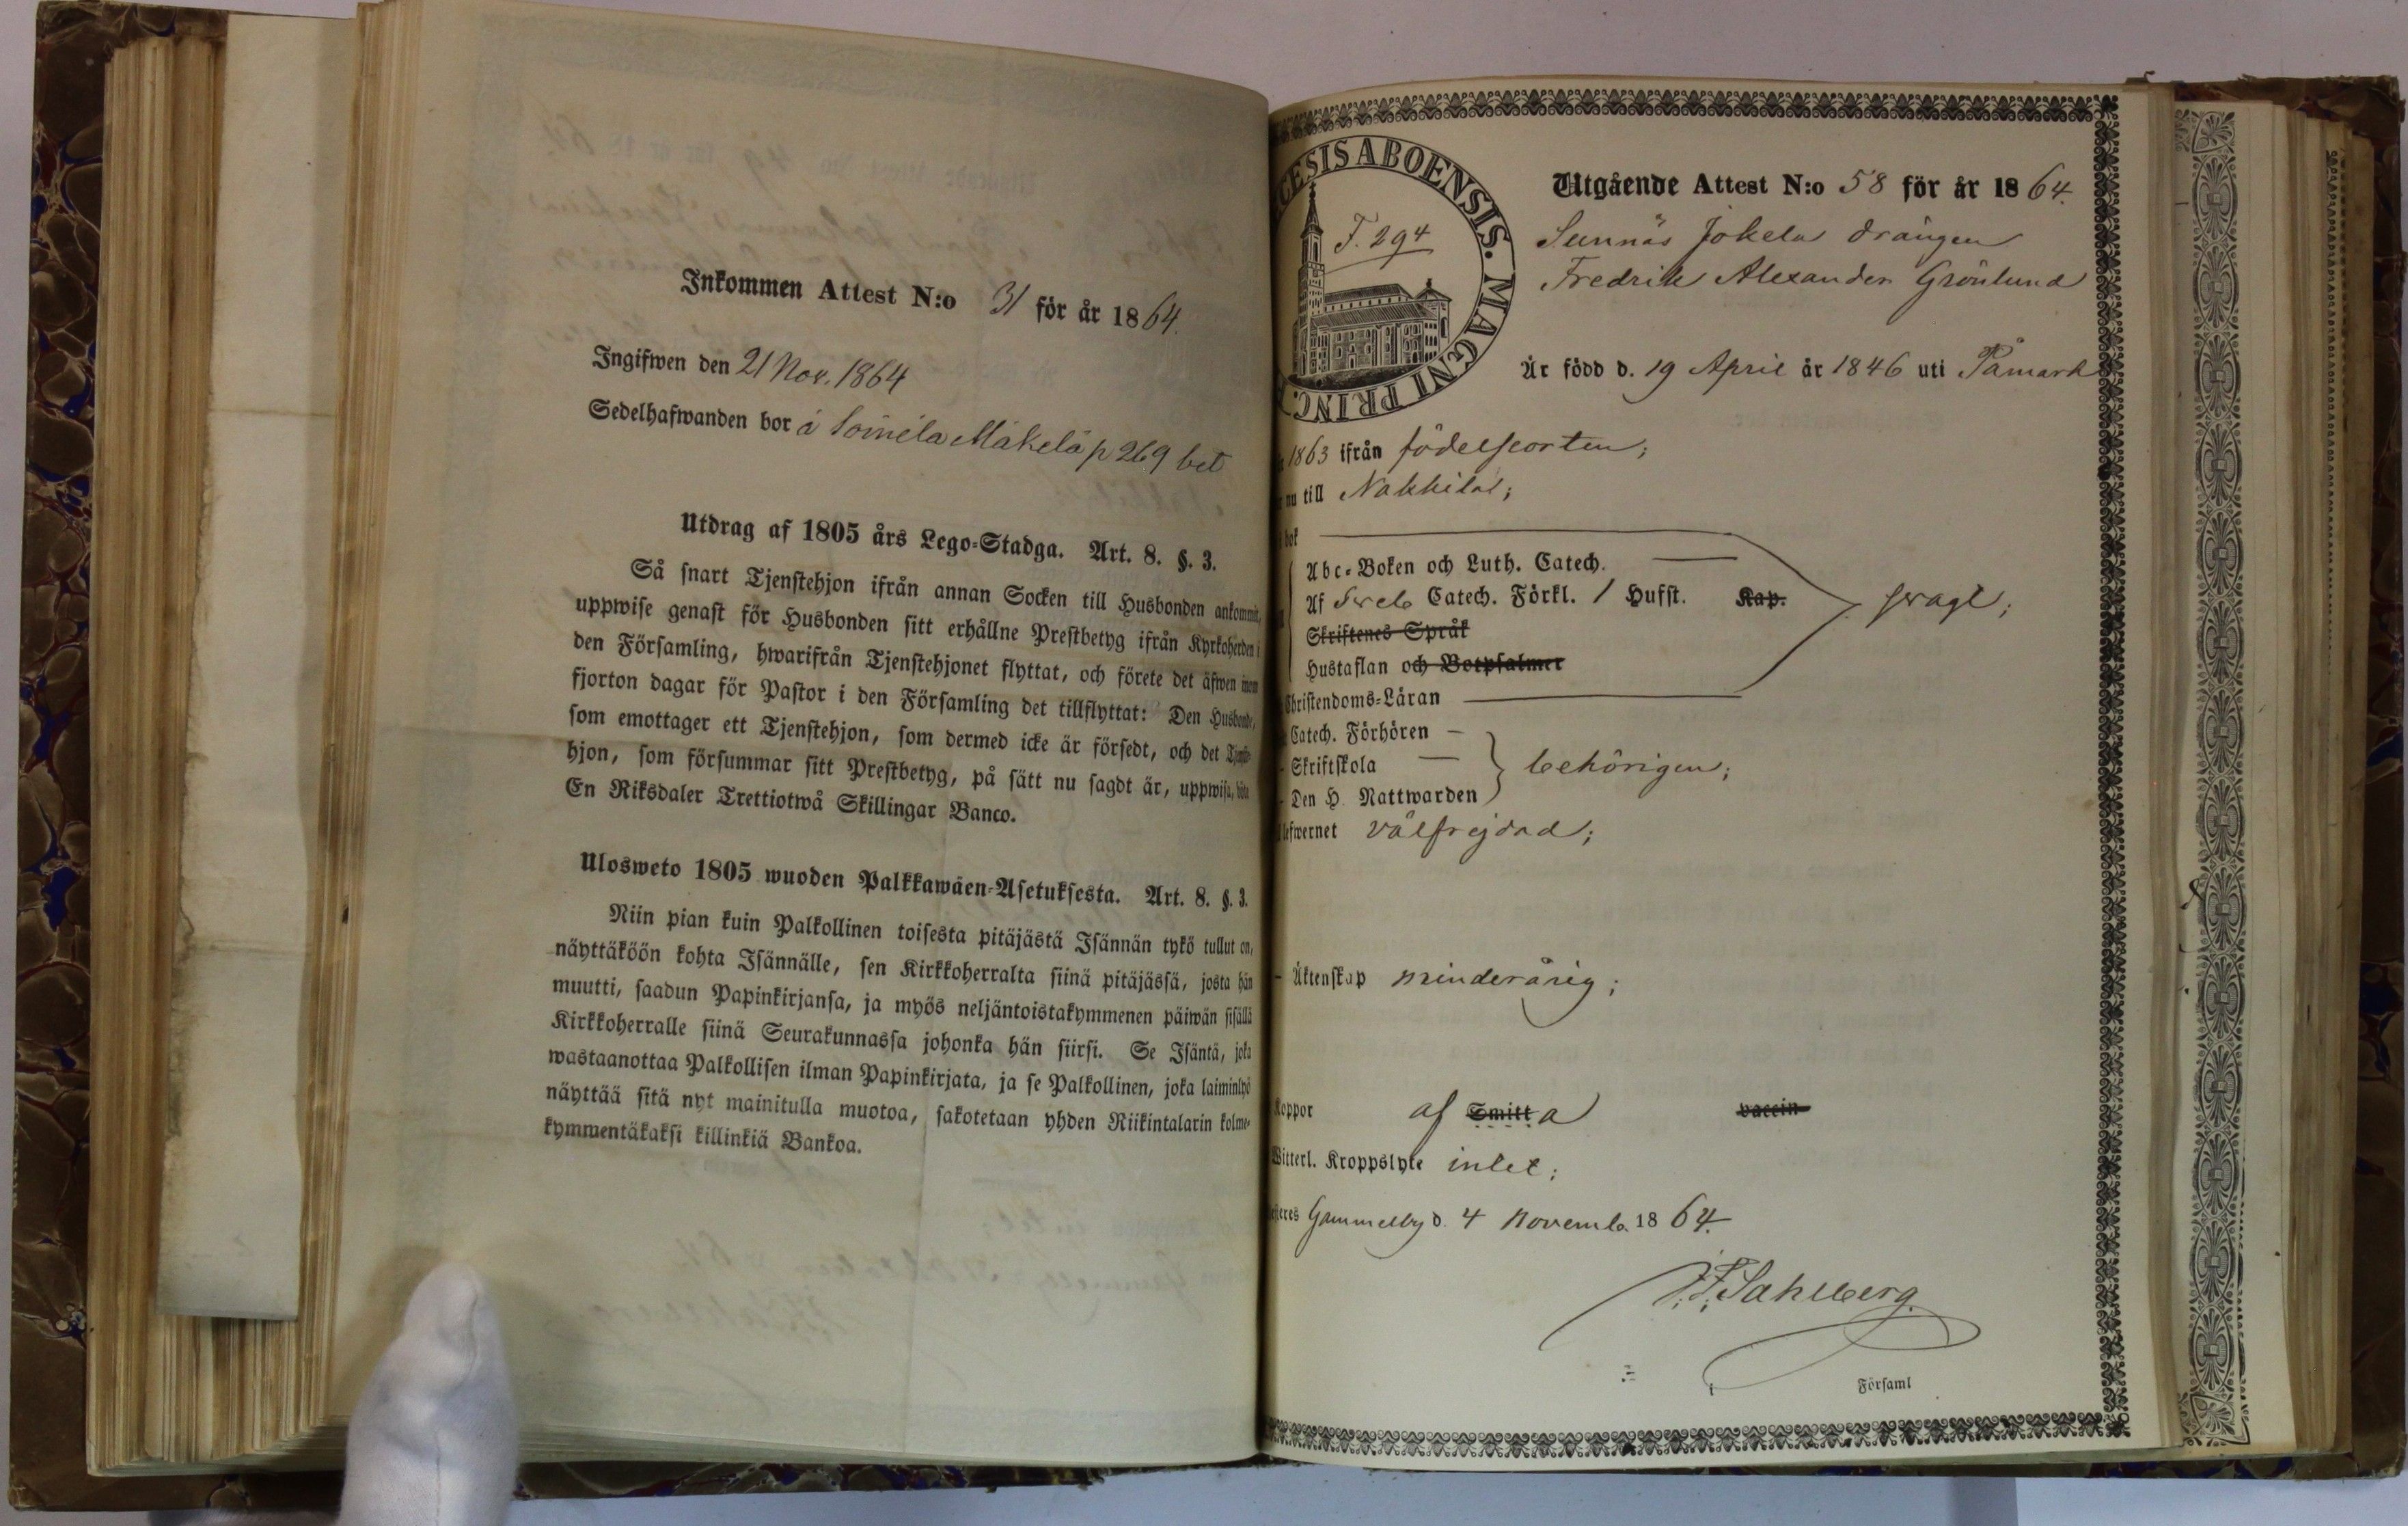 Inkommen Attest N:o 31 för år 1864.
Ingifwen den 21 Nov. 1864
Sedelhafwanden bor á Soinila Mäkelä p 269 bet
Utdrag af 1805 års Lego-Stadga. Art. 8. §. 3.
Så snart Tjenstehjon ifrån annan Socken till Husbonden ankommit,
uppwise genast för Husbonden sitt erhållne Prestbetyg ifrån Kyrkoherden i
den Församling, hwarifrån Tjenstehjonet flyttat, och förete det äfwen inom
fjorton dagar för Pastor i den Församling det tillflyttat: Den Husbonde,
som emottager ett Tjenstehjon, som dermed icke är försedt, och det Tjenste-
hjon, som försummar sitt Prestbetyg, på sätt nu sagdt är, uppwisa, böte
En Riksdaler Trettiotwå Skillingar Banco.
Ulosweto 1805 wuoden Palkkawäen-Asetuksesta. Art. 8. §. 3.
Niin pian kuin Palkollinen toisesta pitäjästä Isännän tykö tullut on,
näyttäköön kohta Isännälle, sen Kirkkoherralta siinä pitäjässä, josta hän
muutti, saadun Papinkirjansa, ja myös neljäntoistakymmenen päiwän sisällä
Kirkkoherralle siinä Seurakunnassa johonka hän siirsi. Se Isäntä, joka
wastaanottaa Palkollisen ilman Papinkirjata, ja se Palkollinen, joka laiminlyö
näyttää sitä nyt mainitulla muotoa, sakotetaan yhden Riikintalarin kolme-
kymmentäkaksi killinkiä Bankoa.
CESIS ABOENSIS. MAGNI PRINC.
F. 294
Utgående Attest N:o 58 för år 1864.
Sunnäs Jokela drängen
Fredrik Alexander Grönlund
Är född d. 19 April år 1846 uti Påmark
1863 ifrån födelseorten;
nu till Nakkila;
bok
Abc-Boken och Luth. Catech.
Af Sveb Catech. Förkl. / Husst. Kap. svagt;
Skriftenes Språk
Hustaflan och Botpsalmer
Christendoms-Läran
Catech. Förhören
Skriftskola behörigen;
Den H. Nattwarden
lefwernet välfrejdad;
Äktenskap minderårig;
Koppor af Smitta vaccin
Witterl. Kroppslyte intet;
Gammelby d. 4 Novemb. 1864.
J. F. Sahlberg.
Församl